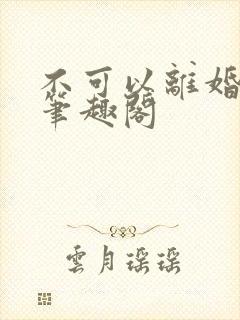 不可以離婚
筆趣閣
雲月瑶瑶